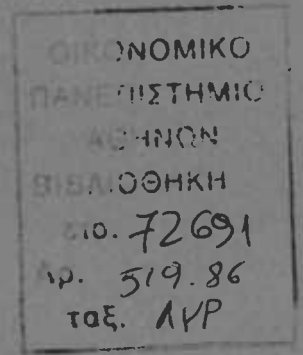 ΟΙΚΟΝΟΜΙΚΟ
ΠΑΝΕΠΙΣΤΗΜΙΟ
ΑΘΗΝΩΝ
ΒΙΒΛΙΟΘΗΚΗ
εισ. 72691
Αρ. 519.86
ταξ. ΛΥΡ